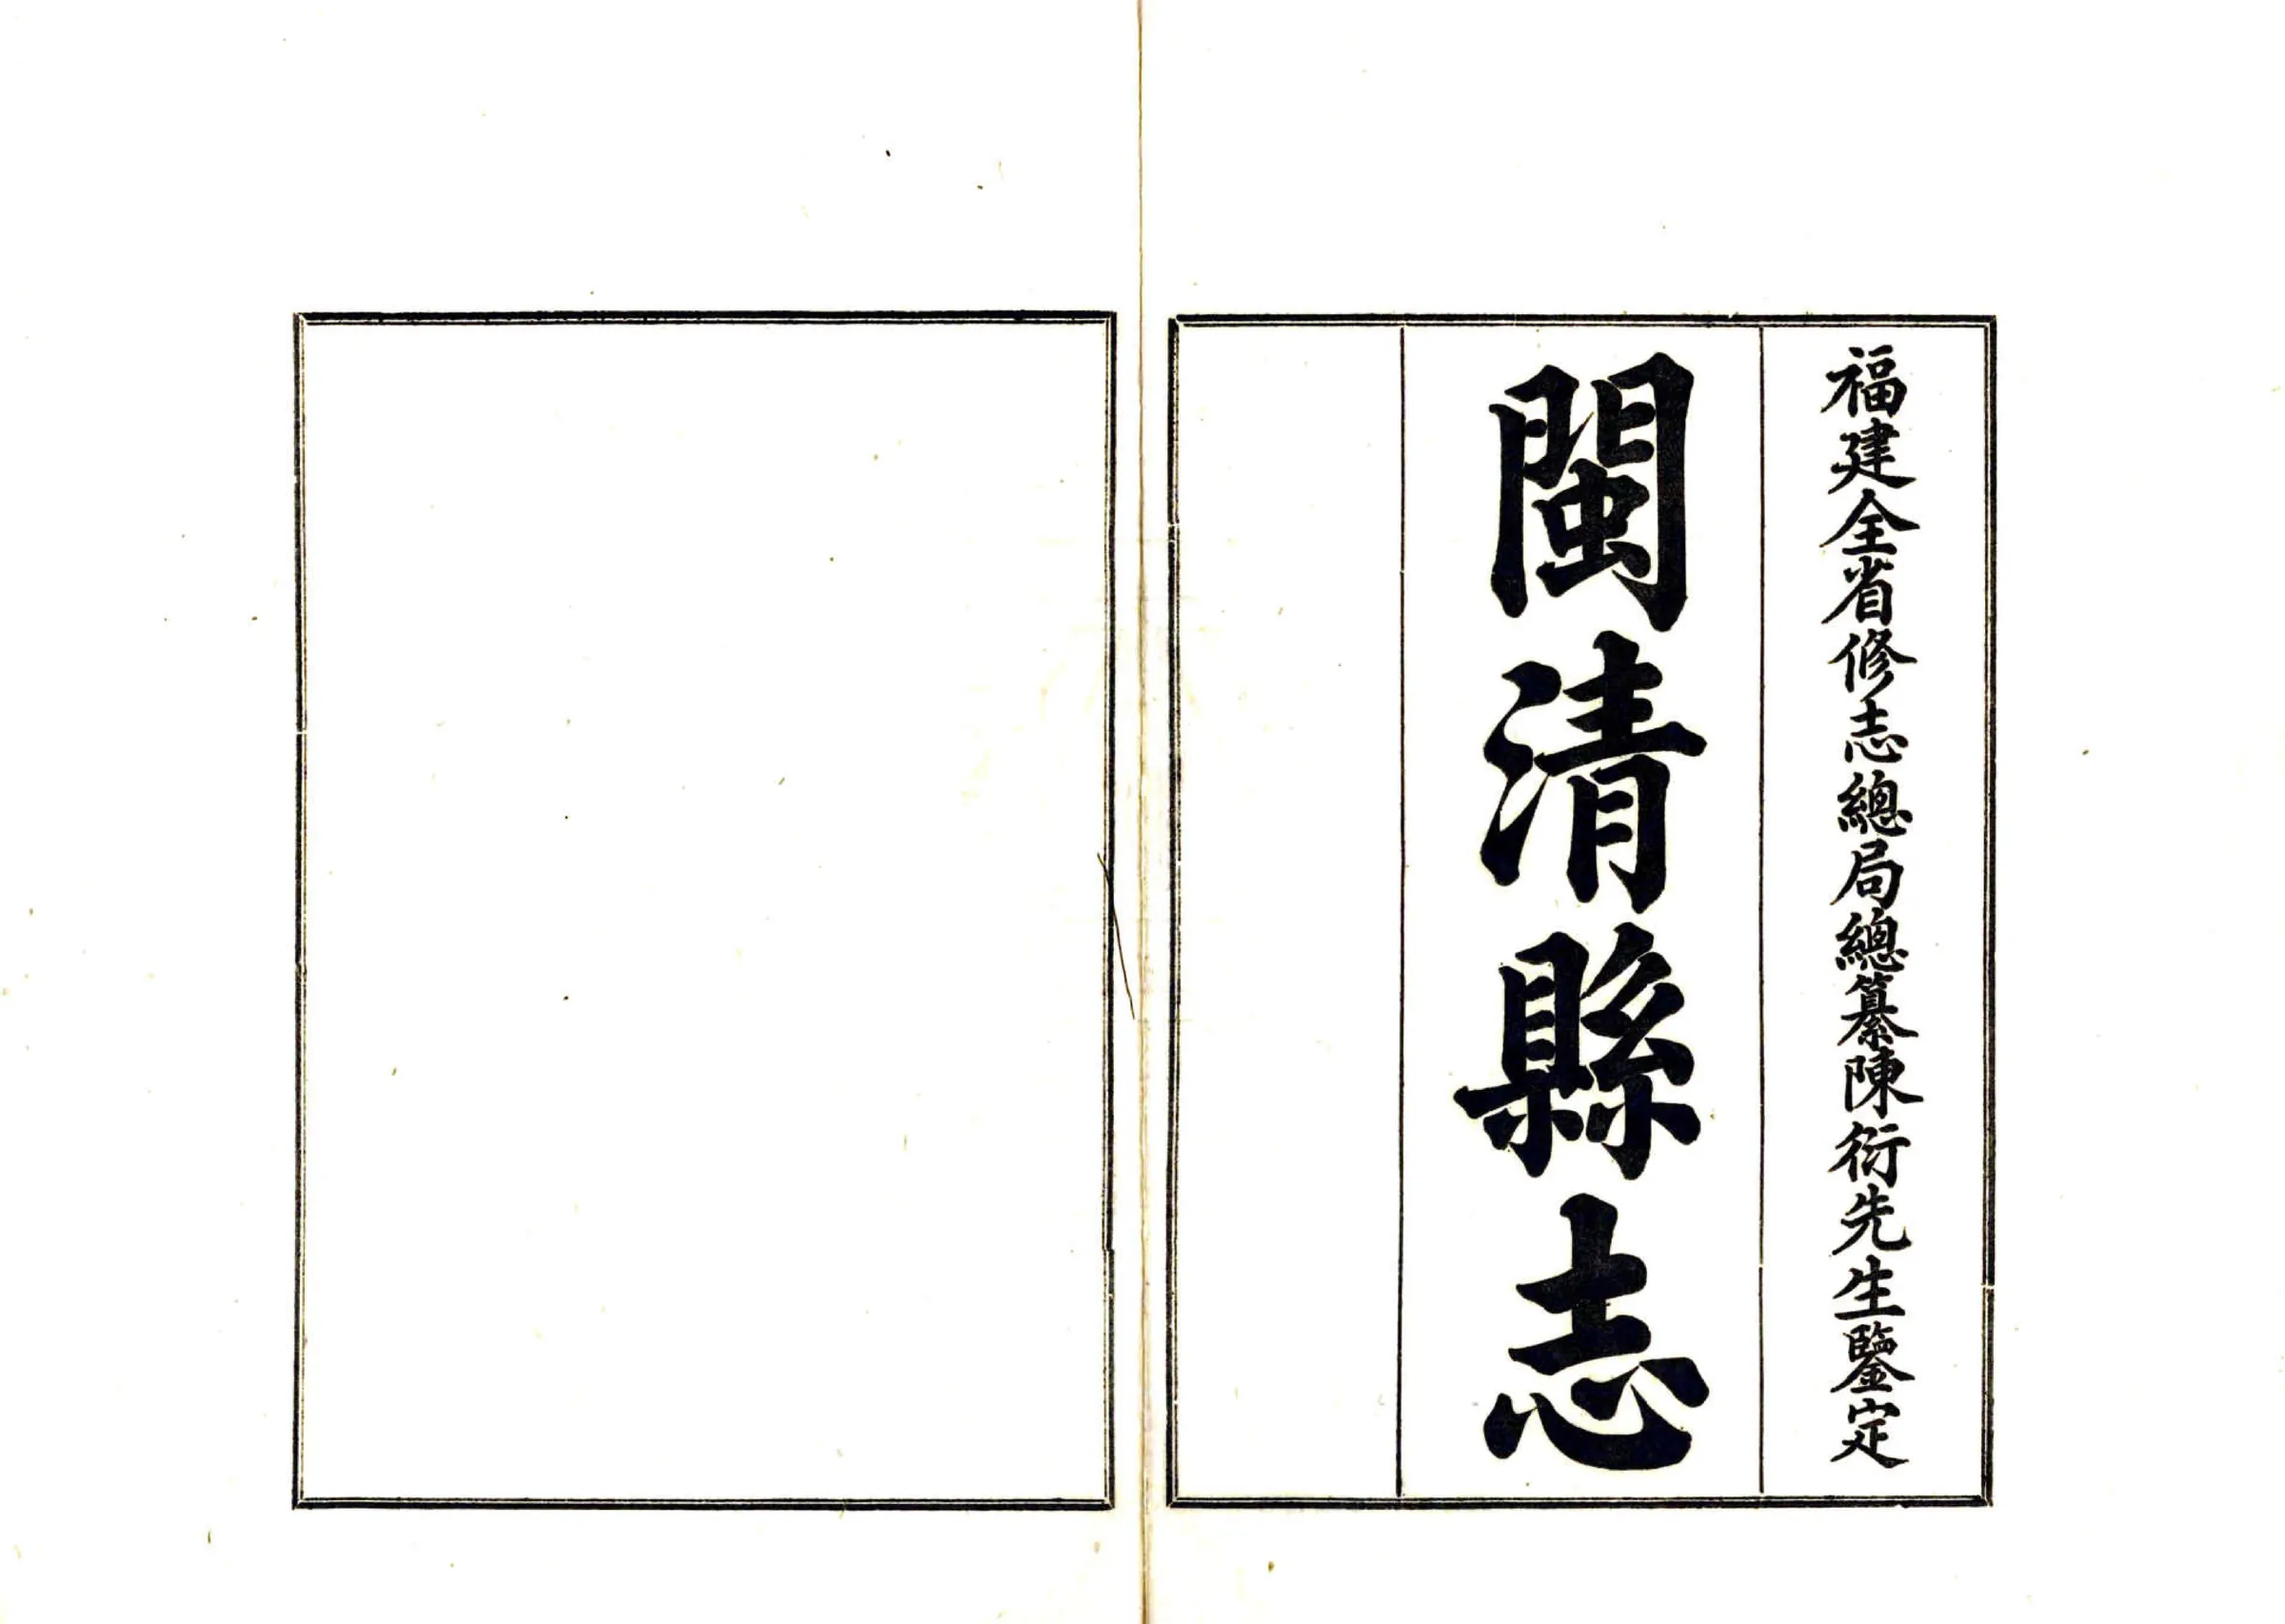 福建全省修志總局總纂陳衍先生鑒定
閩清縣志